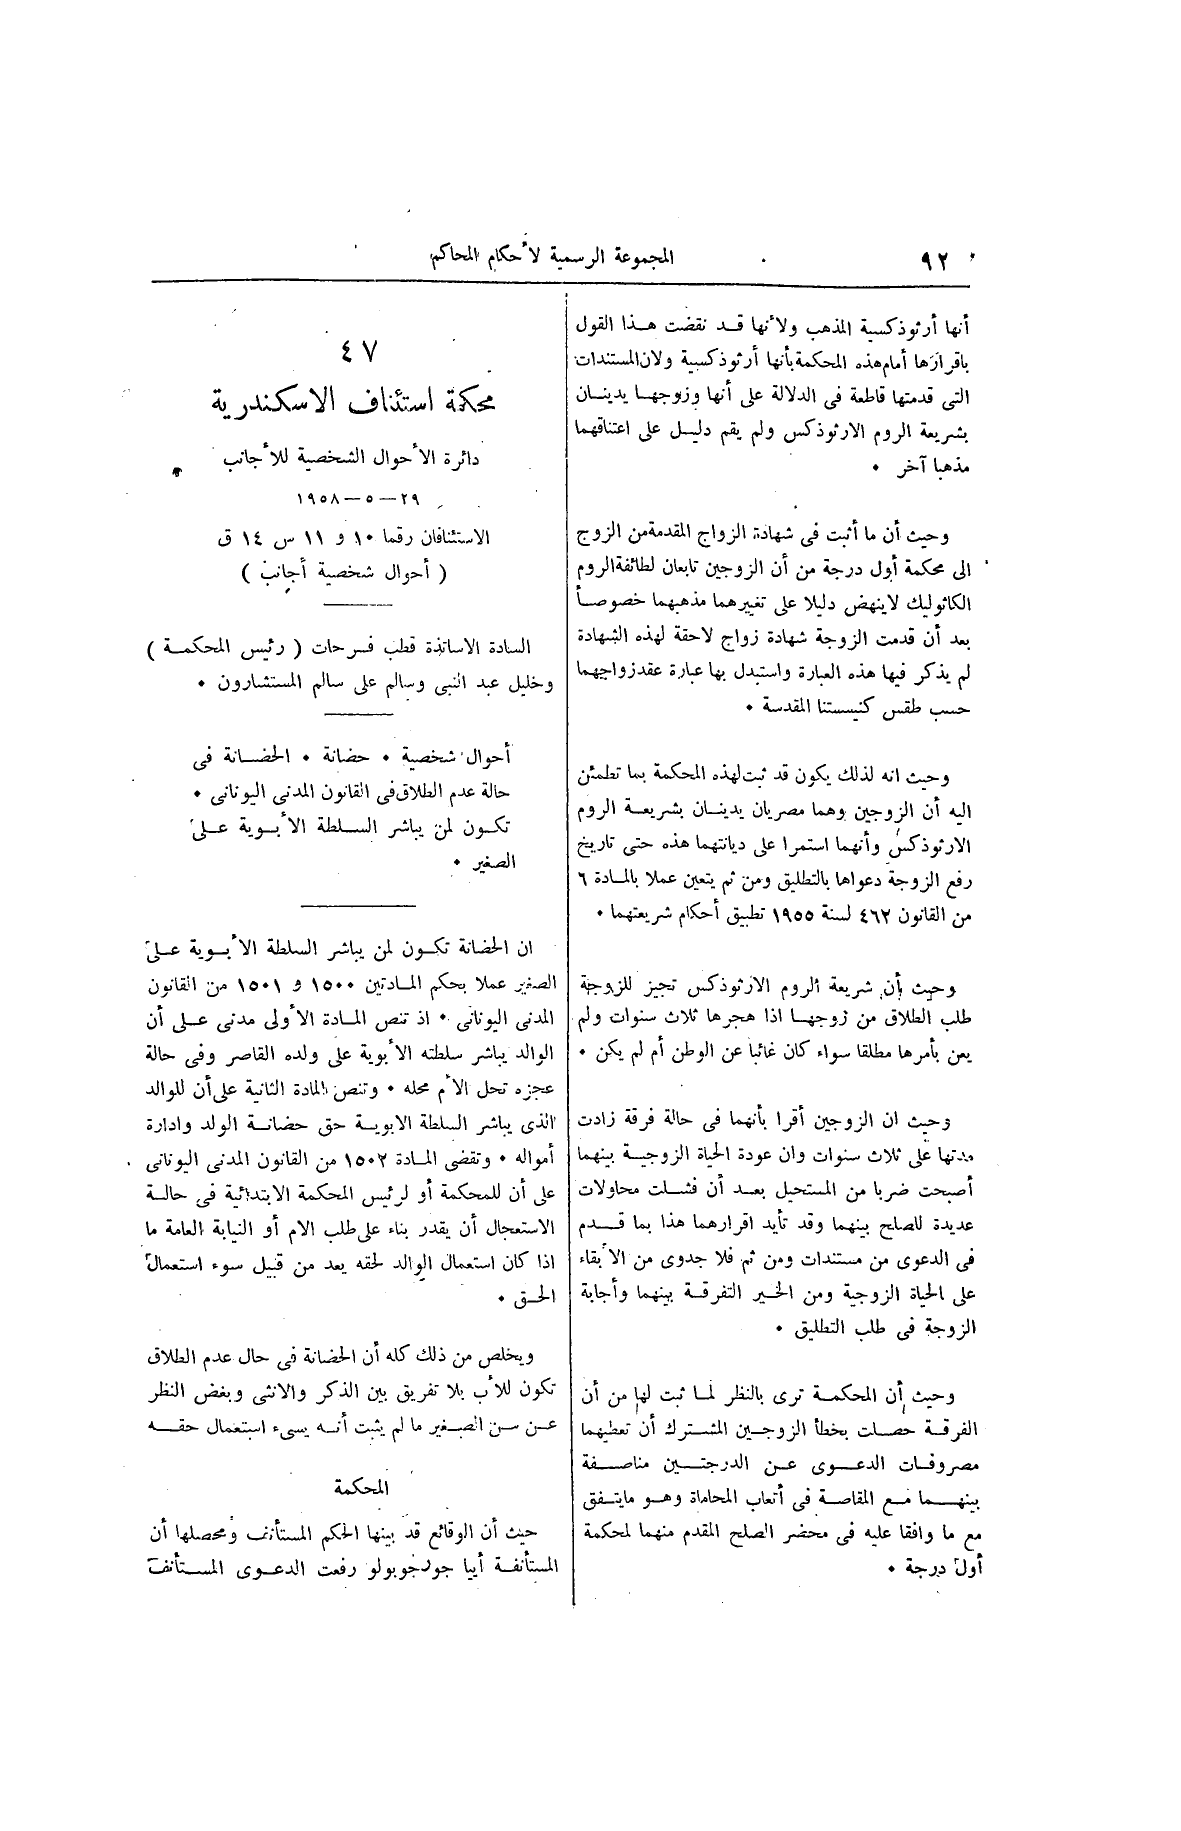 ٩٢
المجموعة الرسمية لأحكام المحاكم
أنها أرثوذكسية المذهب ولأنها قد نقضت هذا القول
باقرارها أمام هذه المحكمة بأنها أرثوذكسية ولان المستندات
التى قدمتها قاطعة فى الدلالة على أنها وزوجها يدينان
بشريعة الروم الارثوذكس ولم يقم دليل على اعتناقهما
مذهبا آخر .
وحيث أن ما أثبت فى شهادة الزواج المقدمة من الزوج
الى محكمة أول درجة من أن الزوجين تابعان لطائفة الروم
الكاثوليك لاينهض دليلا على تغييرهما مذهبهما خصوصا
بعد أن قدمت الزوجة شهادة زواج لاحقة لهذه الشهادة
لم يذكر فيها هذه العبارة واستبدل بها عبارة عقد زواجهما
حسب طقس كنيستنا المقدسة .
وحيث انه لذلك يكون قد ثبت لهذه المحكمة بما تطمئن
اليه أن الزوجين وهما مصريان يدينان بشريعة الروم
الارثوذكس وأنهما استمرا على ديانتهما هذه حتى تاريخ
رفع الزوجة دعواها بالتطليق ومن ثم يتعين عملا بالمادة ٦
من القانون ٤٦٢ لسنة ١٩٥٥ تطبيق أحكام شريعتهما .
وحيث أن شريعة الروم الارثوذكس تجيز للزوجة
طلب الطلاق من زوجها اذا هجرها ثلاث سنوات ولم
يعن بأمرها مطلقا سواء كان غائبا عن الوطن أم لم يكن .
وحيث ان الزوجين أقرا بأنهما فى حالة فرقة زادت
مدتها على ثلاث سنوات وان عودة الحياة الزوجية بينهما
أصبحت ضربا من المستحيل بعد أن فشلت محاولات
عديدة للصلح بينهما وقد تأيد اقرارهما هذا بما قدم
فى الدعوى من مستندات ومن ثم فلا جدوى من الأبقاء
على الحياة الزوجية ومن الخير التفرقة بينهما وأجابة
الزوجة فى طلب التطليق .
وحيث أن المحكمة ترى بالنظر لما ثبت لها من أن
الفرقة حصلت بخطأ الزوجين المشترك أن تعطيهما
مصروفات الدعوى عن الدرجتين مناصفة
بينهما مع المقاصة فى أتعاب المحاماة وهو مايتفق
مع ما وافقا عليه فى محضر الصلح المقدم منهما لمحكمة
أول درجة .
٤٧
محكمة استئناف الاسكندرية
دائرة الأحوال الشخصية للأجانب
٢٩ - ٥ - ١٩٥٨
الاستئنافان رقما ١٠ و ١١ س ١٤ ق
( أحوال شخصية أجانب )
السادة الاساتذة قطب فرحات ( رئيس المحكمة )
وخليل عبد النبى وسالم على سالم المستشارون .
أحوال شخصية . حضانة . الحضانة فى
حالة عدم الطلاق فى القانون المدنى اليونانى .
تكون لمن يباشر السلطة الأبوية على
الصغير .
ان الحضانة تكون لمن يباشر السلطة الأبوية على
الصغير عملا بحكم المادتين ١٥٠٠ و ١٥٠١ من القانون
المدنى اليونانى . اذ تنص المادة الأولى مدنى على أن
الوالد يباشر سلطته الأبوية على ولده القاصر وفى حالة
عجزه تحل الأم محله . وتنص المادة الثانية على أن للوالد
الذى يباشر السلطة الابوية حق حضانة الولد وادارة
أمواله . وتقضى المادة ١٥٠٢ من القانون المدنى اليونانى
على أن للمحكمة أو لرئيس المحكمة الابتدائية فى حالة
الاستعجال أن يقدر بناء على طلب الام أو النيابة العامة ما
اذا كان استعمال الوالد لحقه يعد من قبيل سوء استعمال
الحق .
ويخلص من ذلك كله أن الحضانة فى حال عدم الطلاق
تكون للأب بلا تفريق بين الذكر والانثى وبغض النظر
عن سن الصغير ما لم يثبت أنه يسىء استعمال حقه
المحكمة
حيث أن الوقائع قد بينها الحكم المستأنف ومحصلها أن
المستأنفة أيبا جورجوبولو رفعت الدعوى المستأنف